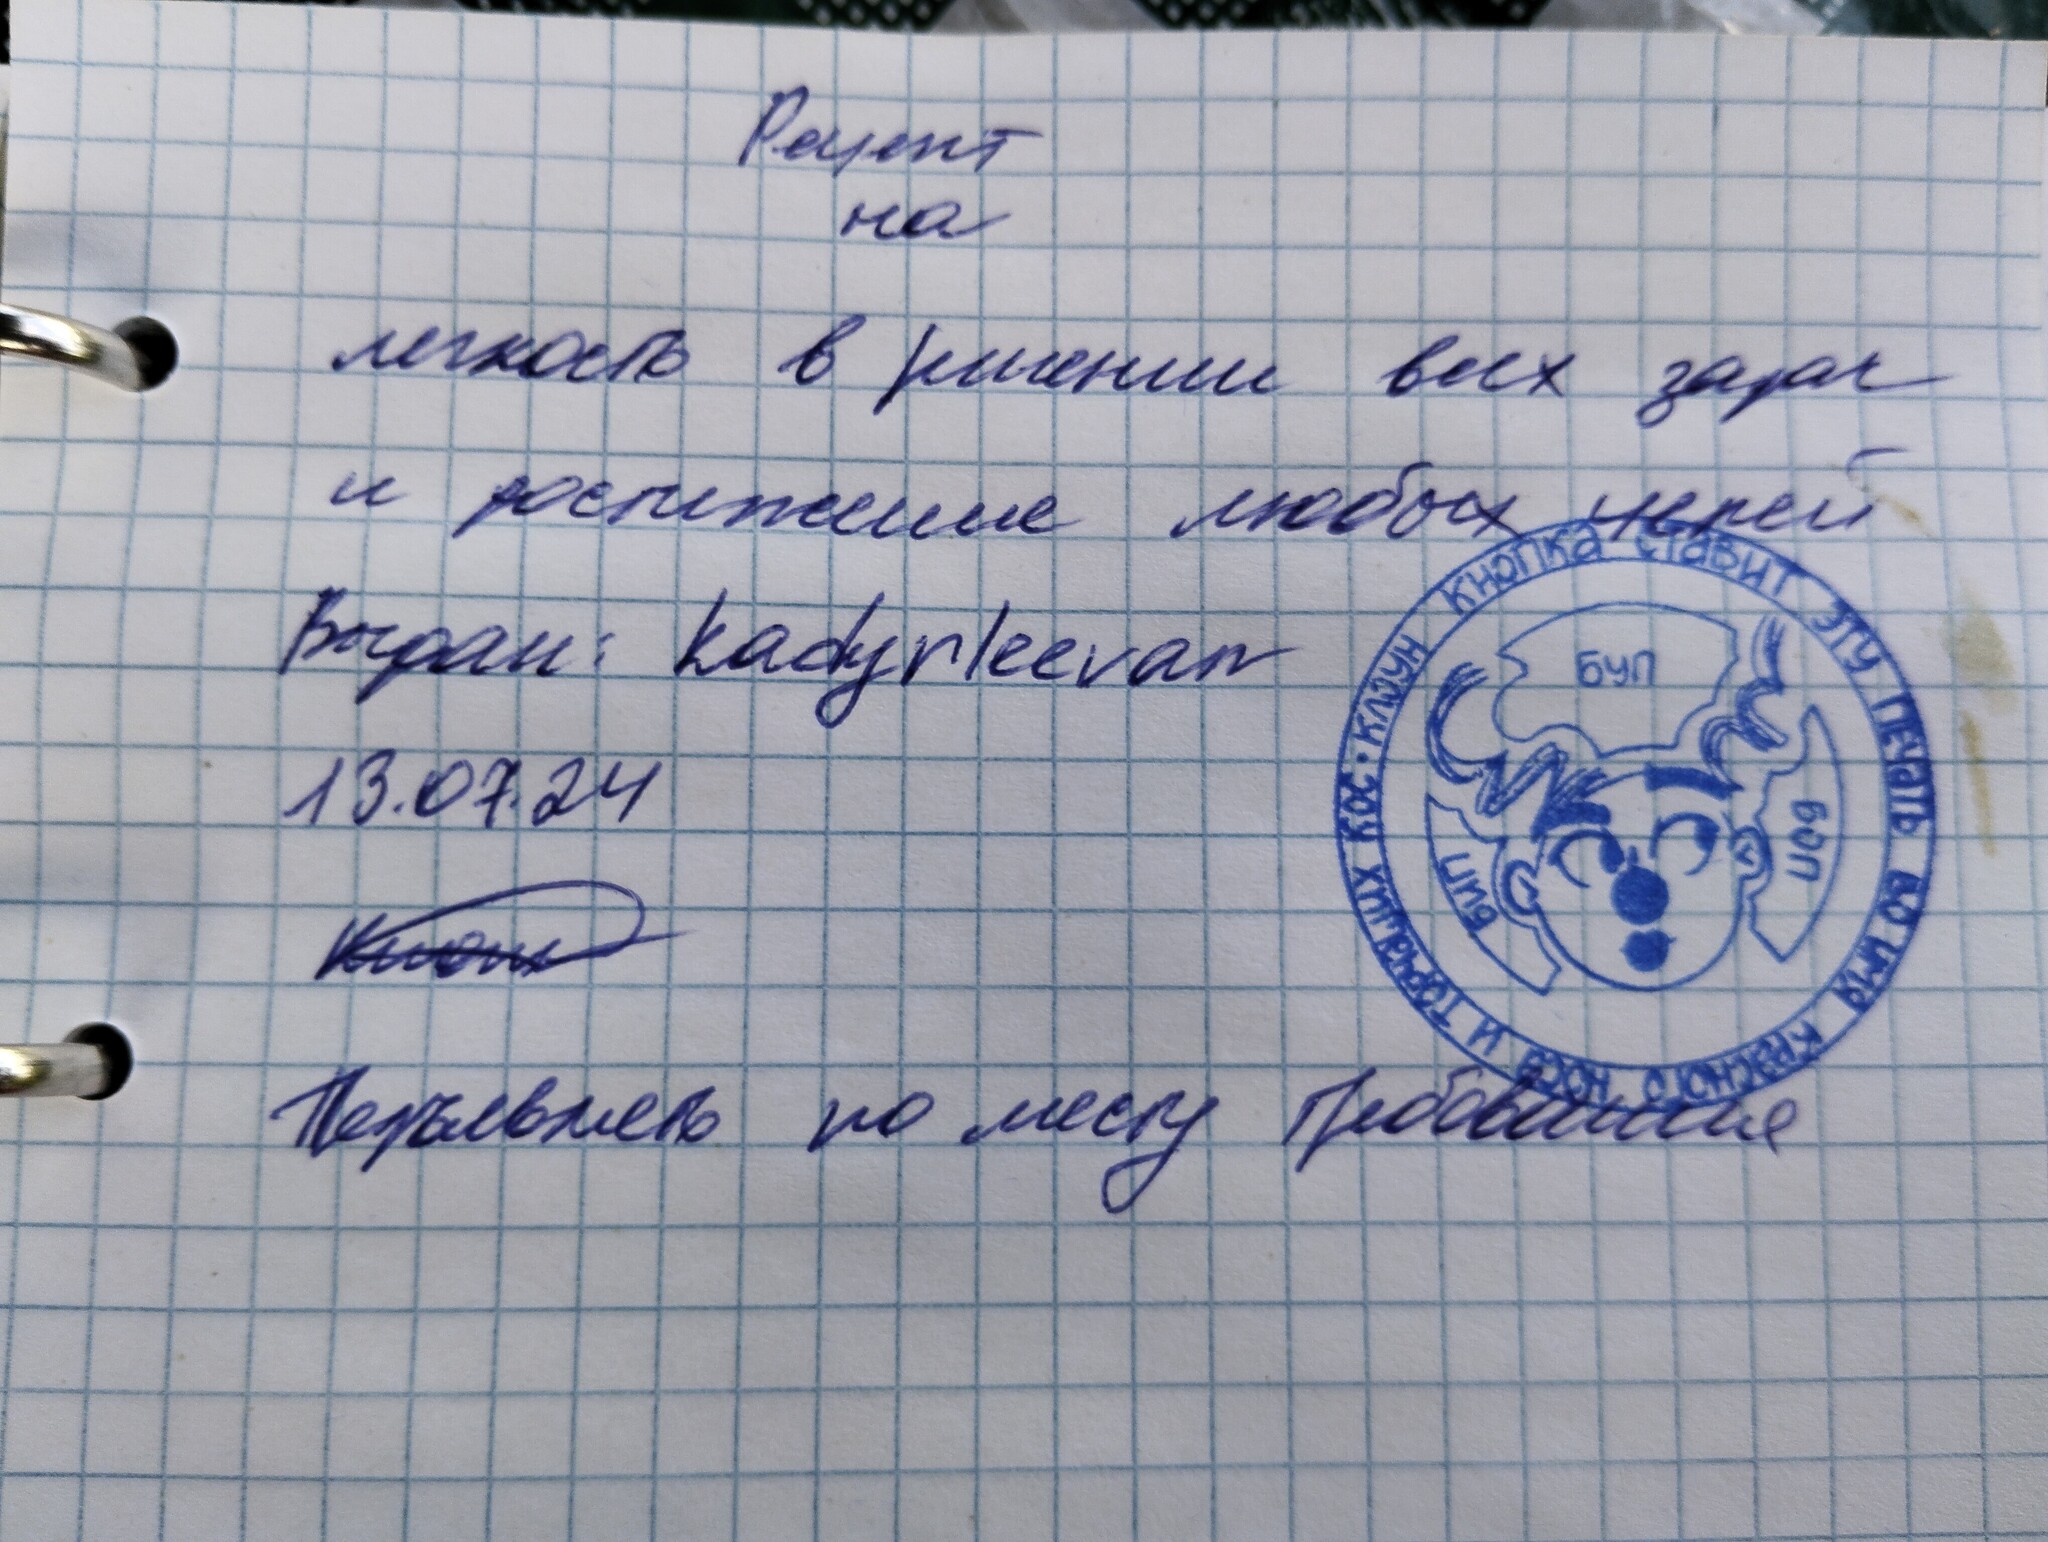 Рецепт
на
легкость в решении всех задач
и достижение любых целей
Выдан: kadyrleevan
13.07.24
Кноп
Предъявлять по месту требования
КЛОУН КНОПКА СТАВИТ ЭТУ ПЕЧАТЬ ВО ИМЯ КРАСНОГО НОСА И ТОРЧАЩИХ КОС •
БУП
БИП
БОП